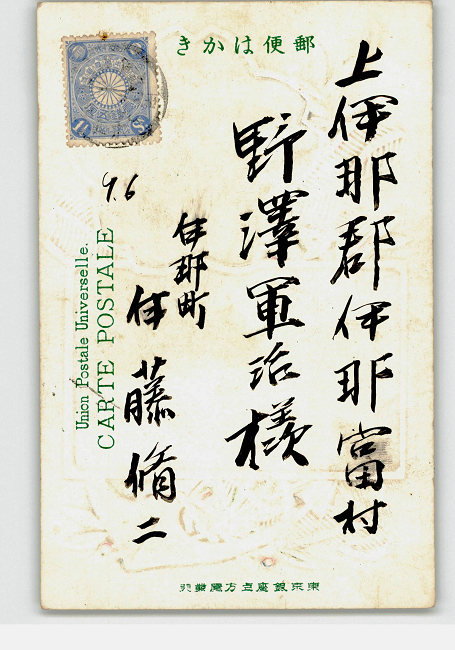 郵便はかき
上伊那郡伊那富村
野澤軍治様
伊那町
伊藤脩二
9.6
Union Postale Universelle.
CARTE POSTALE
1½ Sn
東京銀座上方屋発行